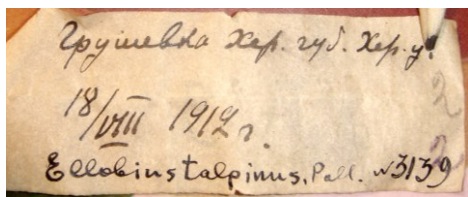 Грушевка Хер. губ. Хер. у.
18/VIII 1912 г.
Ellobius talpinus, Pall. N 3139